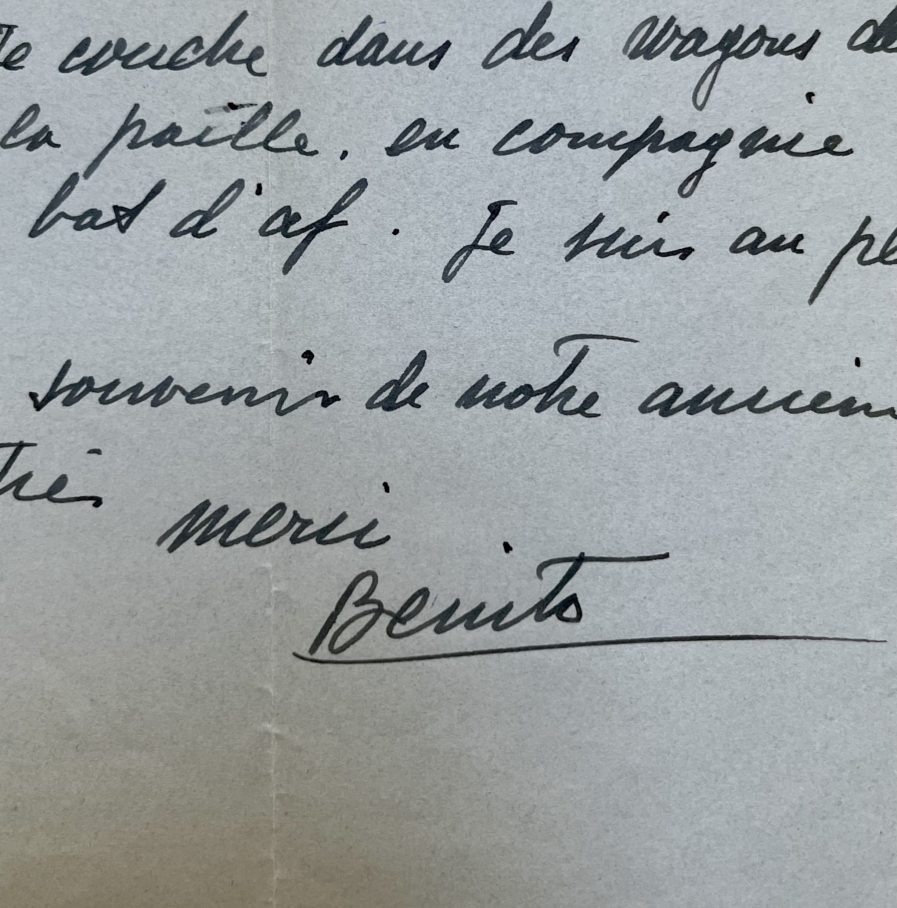 Je couche dans des wagons de
la paille. en compagnie
bat d'af. Je suis au pl
souvenir de notre ancienn
très merci
Benito